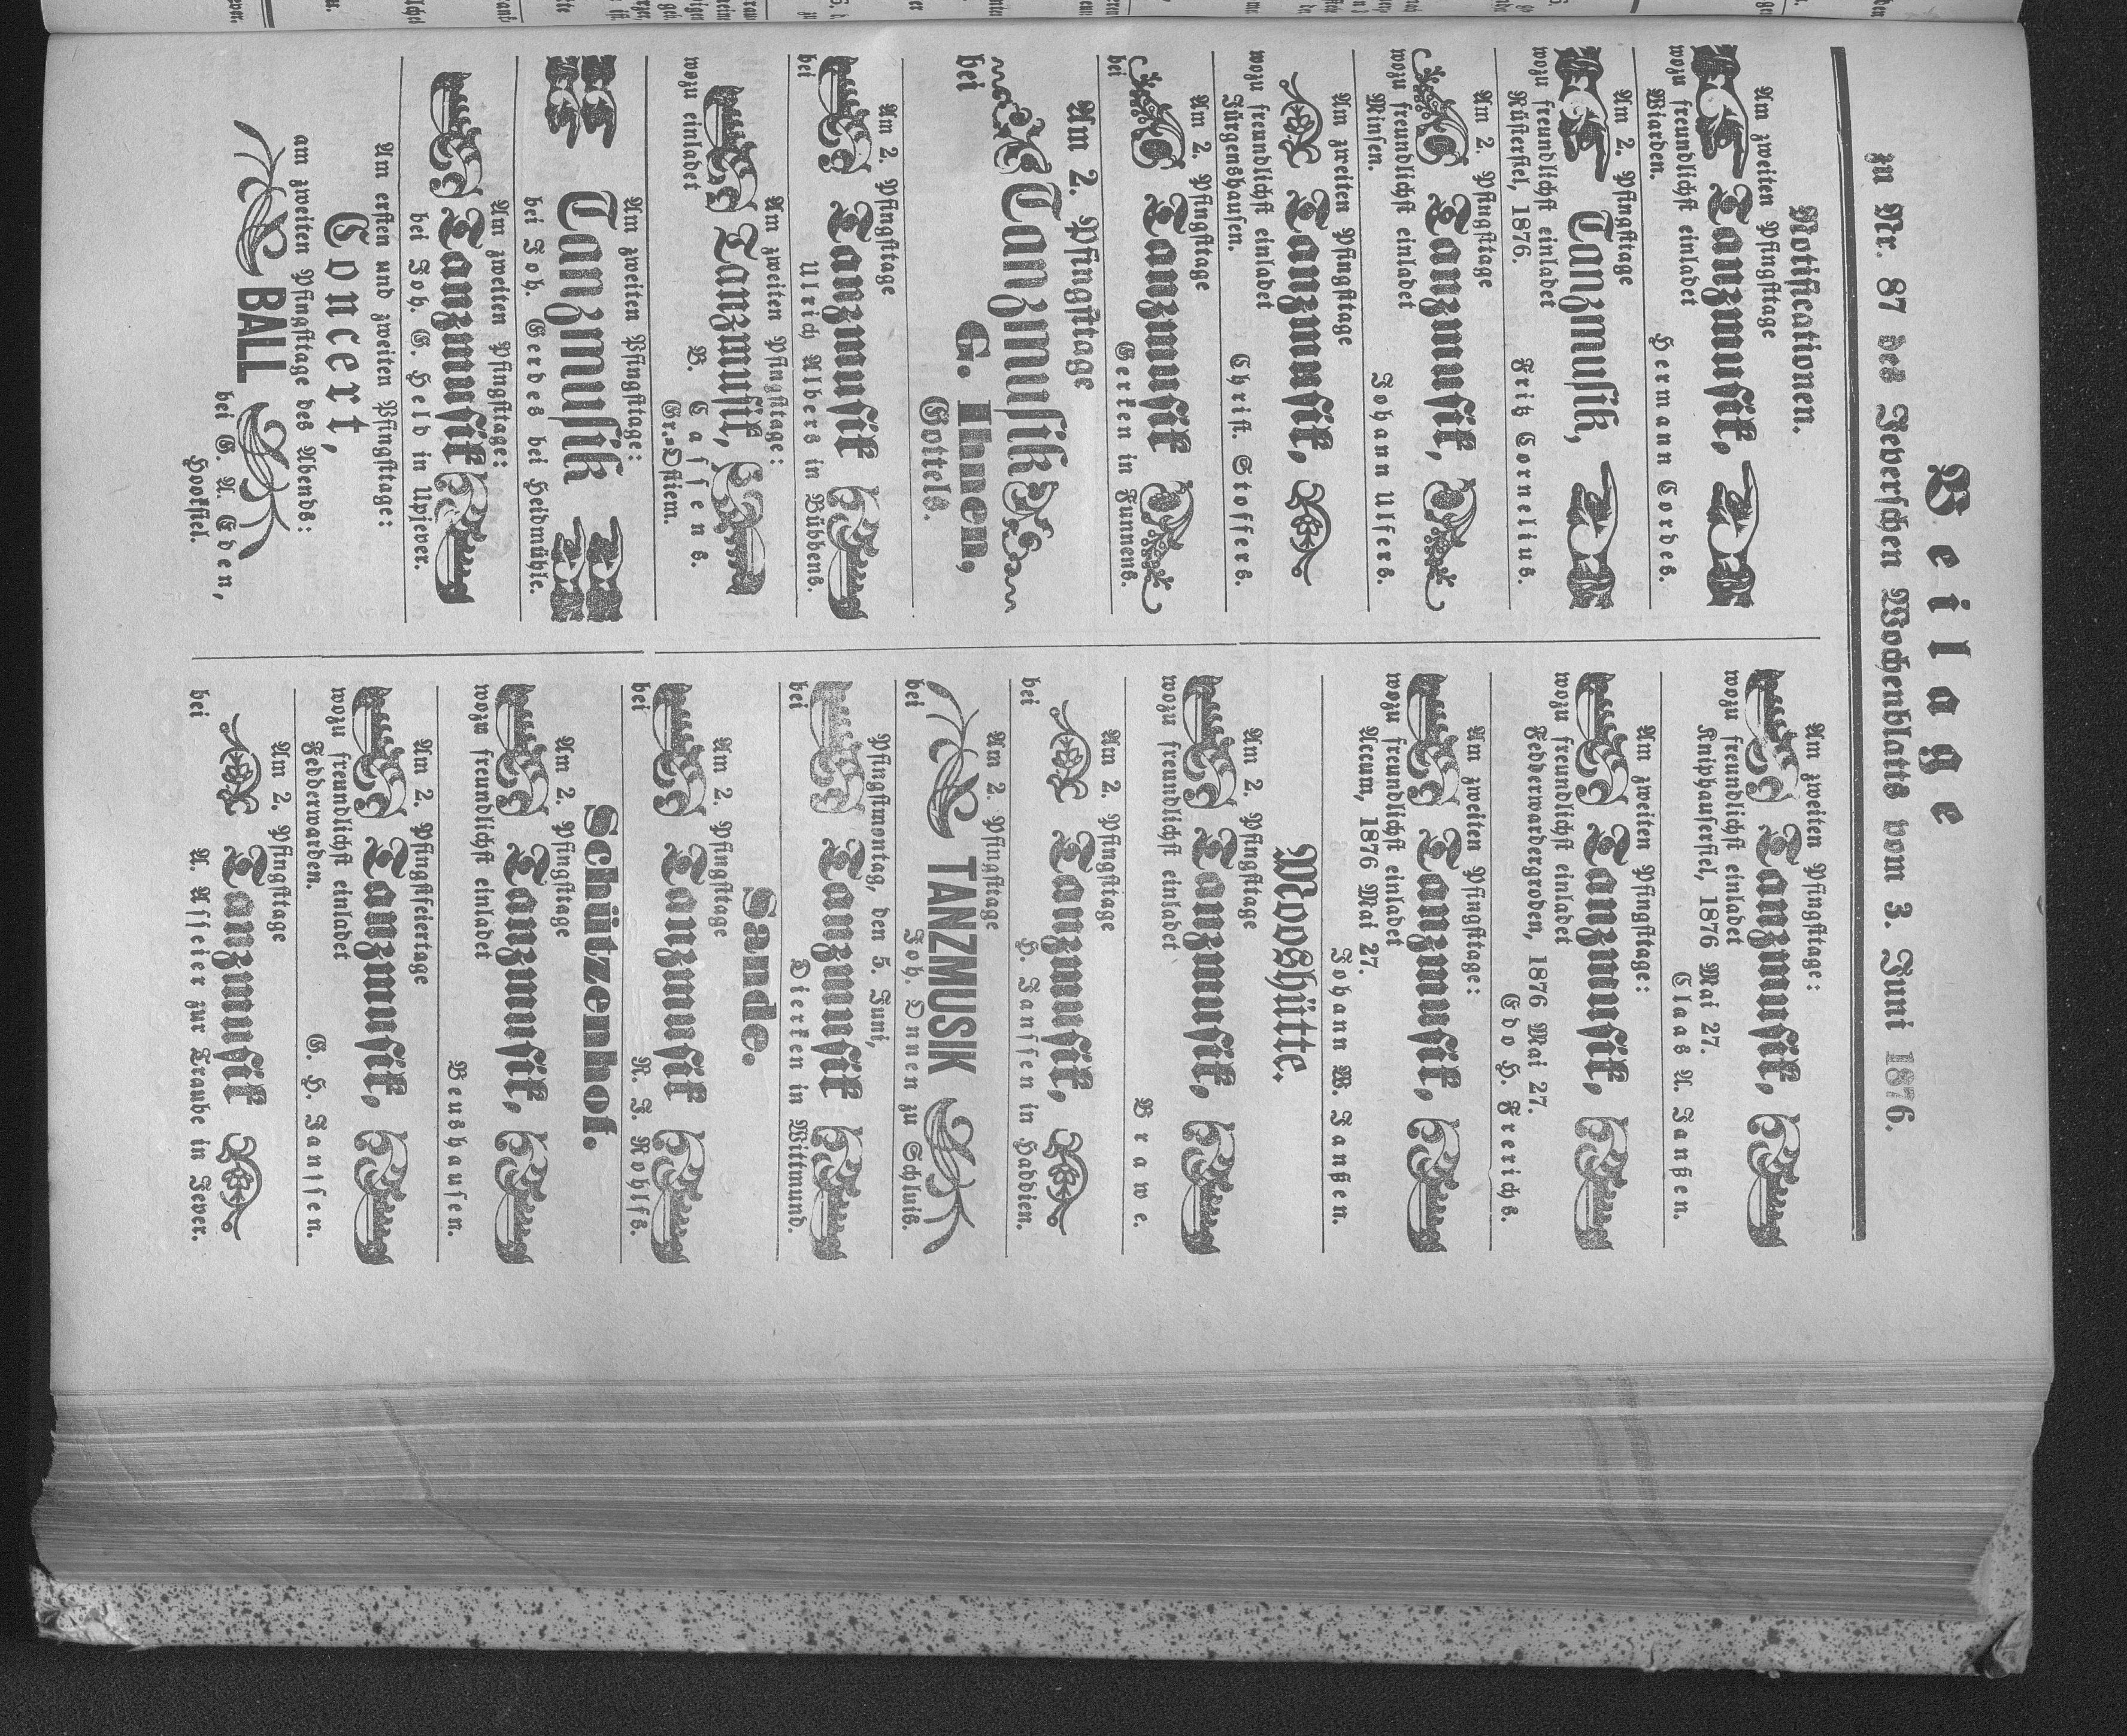 Beilage
zu Nr. 87 des Jeverschen Wochenblatts vom 3. Juni 1876.
Notificationen.
Am zweiten Pfingsttage
Tanzmusik,
wozu freundlichst einladet
Wiarden. Hermann Cordes.
Am 2. Pfingsttage
Tanzmusik,
wozu freundlichst einladet
Rüstersiel, 1876. Fritz Cornelius.
Am 2. Pfingsttage
Tanzmusik,
wozu freundlichst einladet
Minsen. Johann Ulfers.
Am zweiten Pfingsttage
Tanzmusik,
wozu freundlichst einladet
Jürgenshausen. Christ. Stoffers.
Am 2. Pfingsttage
Tanzmusik
bei Gerken in Funnens.
Am 2. Pfingsttage
Tanzmusik
bei G. Ihnen,
Gottels.
Am 2. Pfingsttage
Tanzmusik
bei Ulrich Albers in Bübbens.
Am zweiten Pfingsttage:
Tanzmusik,
wozu einladet B. Cassens.
Gr.-Ostiem.
Am zweiten Pfingsttage:
Tanzmusik
bei Joh. Gerdes bei Heidmühle.
Am zweiten Pfingsttage:
Tanzmusik
bei Joh. G. Held in Upjever.
Am ersten und zweiten Pfingsttage:
Concert,
am zweiten Pfingsttage des Abends:
BALL
bei G. A. Eden,
Hooksiel.
Am zweiten Pfingsttage:
Tanzmusik,
wozu freundlichst einladet
Kniphausersiel, 1876 Mai 27.
Claas A. Janßen.
Am zweiten Pfingsttage:
Tanzmusik,
wozu freundlichst einladet
Fedderwardergroden, 1876 Mai 27.
Edo H. Frerichs.
Am zweiten Pfingsttage:
Tanzmusik,
wozu freundlichst einladet
Accum, 1876 Mai 27.
Johann B. Janßen.
Mooshütte.
Am 2. Pfingsttage
Tanzmusik,
wozu freundlichst einladet
Brawe.
Am 2. Pfingsttage
Tanzmusik,
bei H. Janssen in Haddien.
Am 2. Pfingsttage
TANZMUSIK
bei Joh. Onnen zu Schluis.
Pfingstmontag, den 5. Juni,
Tanzmusik
bei Dierken in Wittmund.
Sande.
Am 2. Pfingsttage
Tanzmusik
bei R. J. Rohlfs.
Schützenhof.
Am 2. Pfingsttage
Tanzmusik,
wozu freundlichst einladet
Beushausen.
Am 2. Pfingstfeiertage
Tanzmusik,
wozu freundlichst einladet
Fedderwarden. G. H. Janssen.
Am 2. Pfingsttage
Tanzmusik
bei A. Asseier zur Traube in Jever.